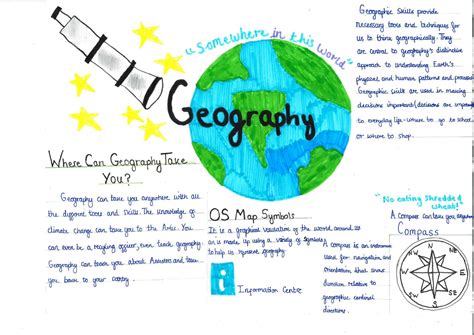 Geographic Skills provide
necessary tools and techniques for
us to think geographically. They
are central to geography's distinctive
approach to understanding Earth's
physical and human patterns and
Geographic skills are used in making
decisions important/decisions are important
to everyday life-where to go to school
or where to shop.
"Somewhere in this World"
Geography
Where Can Geography Take
You?
Geography can take you anywhere with all
the different tools and skills. The knowledge of
climate change can take you to the Artic. You
can even be a officer, even teach geography.
Geography can teach you about and take
you back to your country.
OS Map Symbols
It is a graphical of the world around us
an is made up using a variety of Symbols
to help us geography.
i
Information Centre
"No eating Shredded
wheat!"
A compass can take you anywhere
Compass
A compass is an instrument
used for navigation and
orientation that shows
direction relative to
geographic cardinal
directions.
N
NE
E
SE
S
SW
W
NW